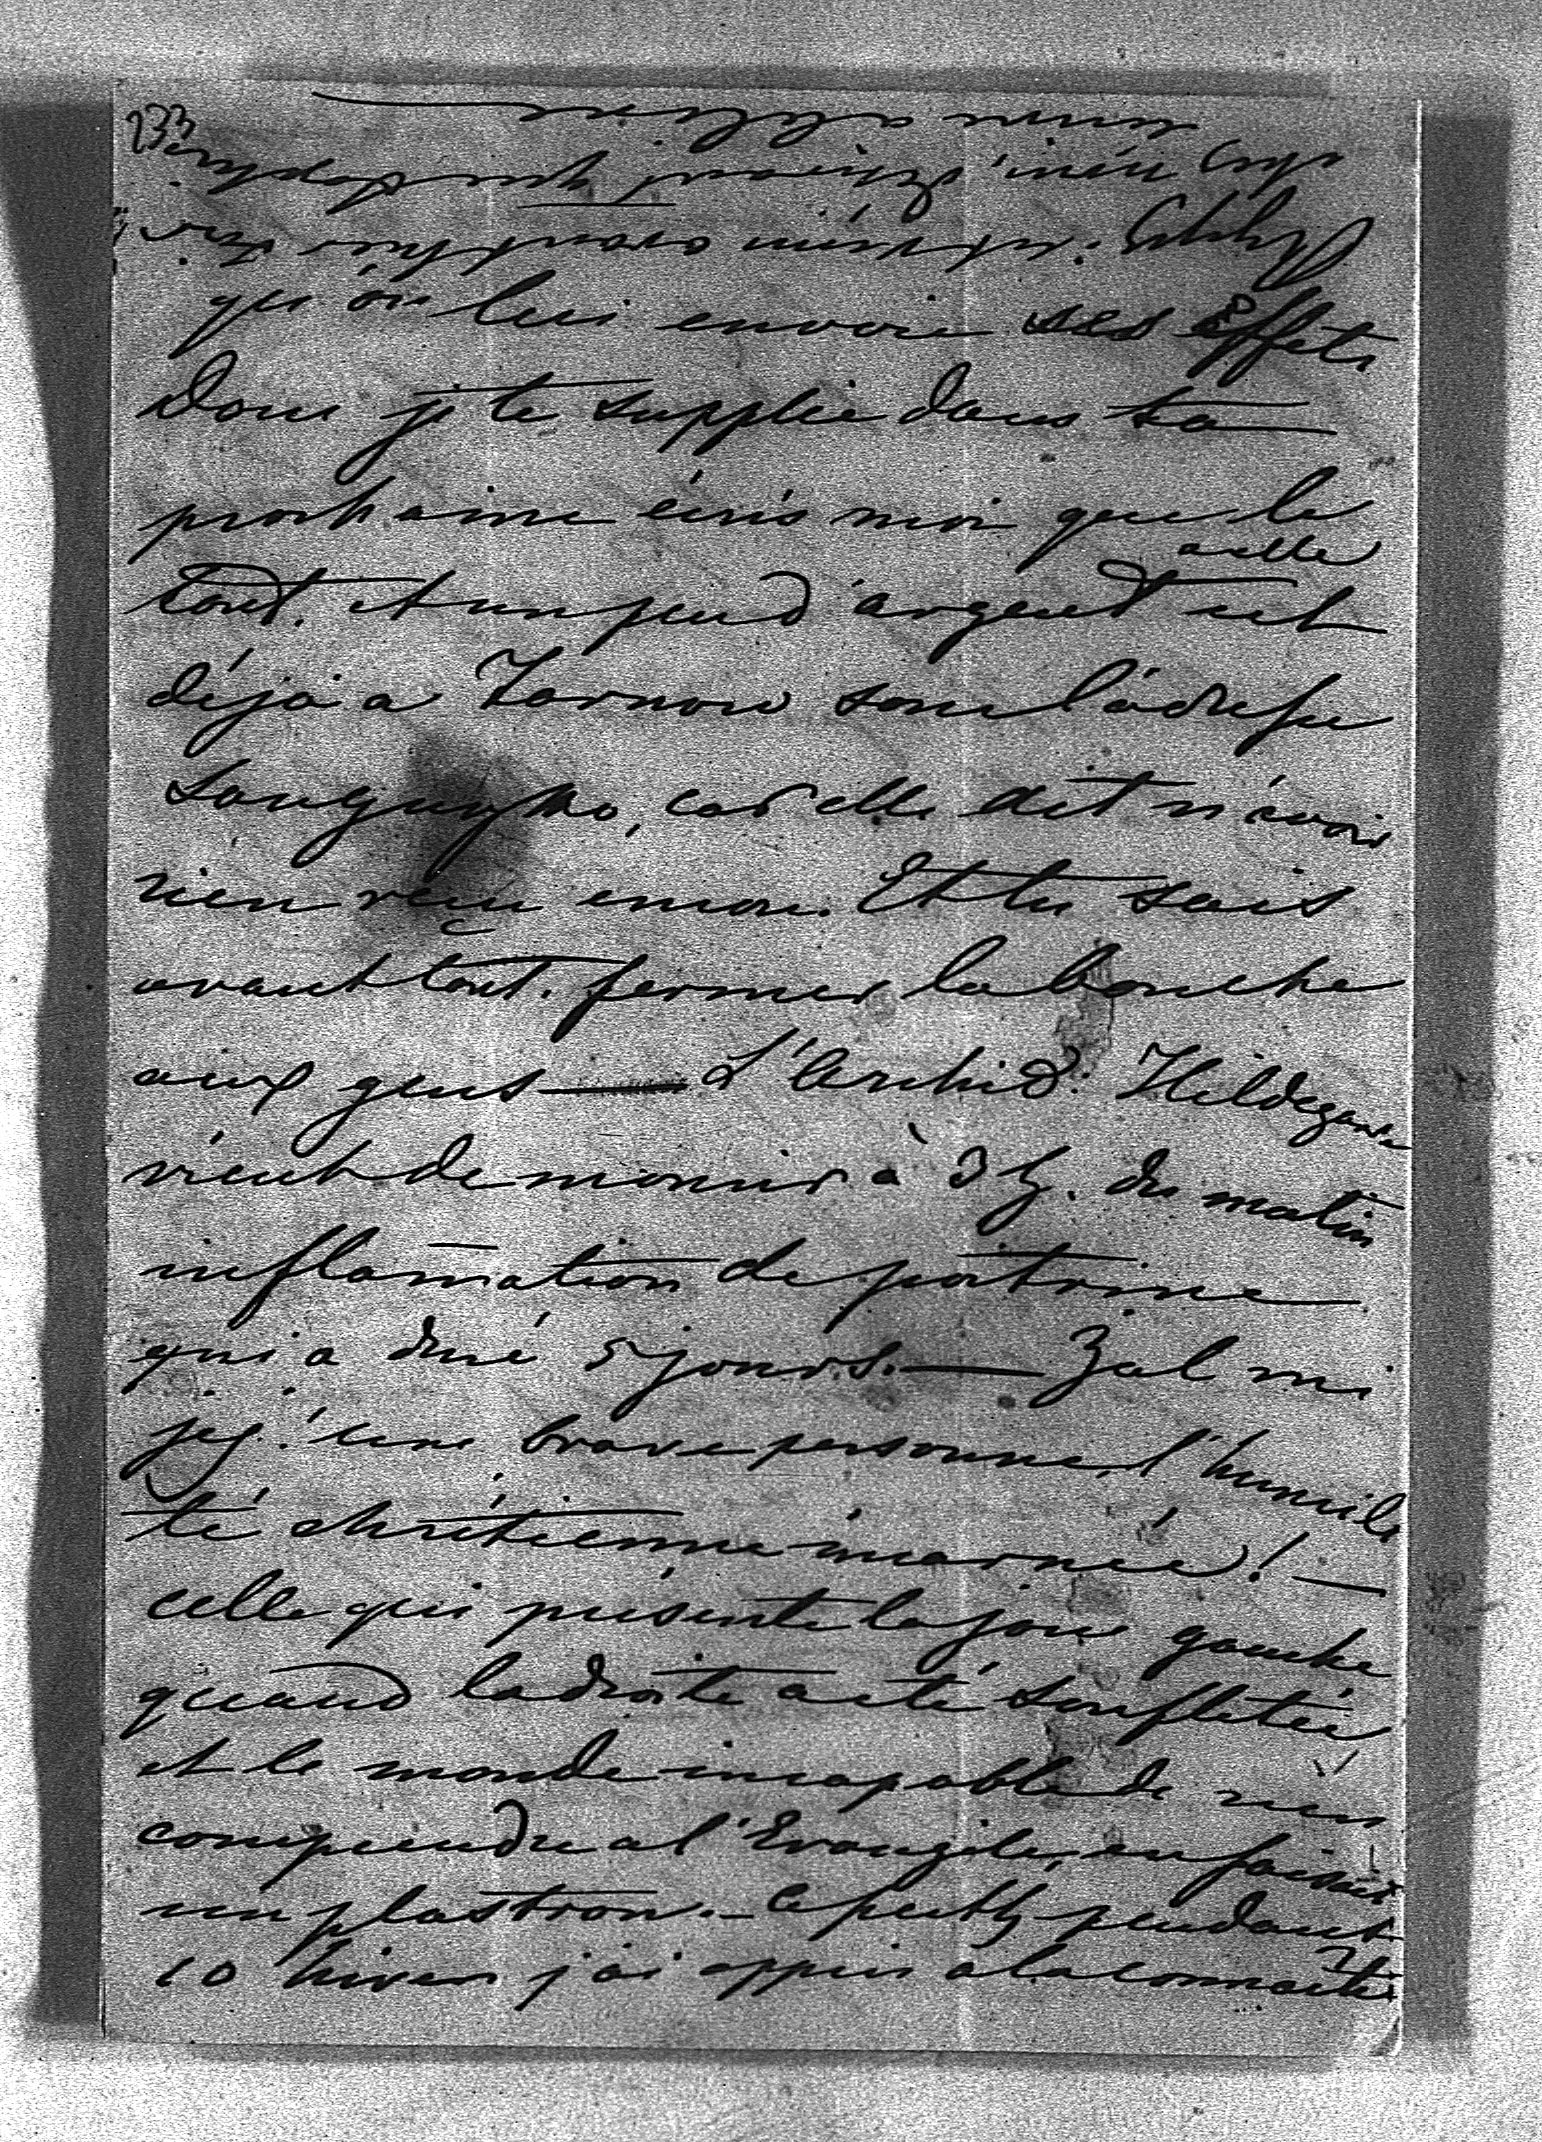 233
qu'on lui envoie ses effets
Donc je te supplie dans ta
prochaine écris moi que le
tout. et un peu d'argent est
a elle
déjà a Tarnow sous l'adresse
Sanguszko, car elle dit n'avoir
rien reçu encore. Et tu sais
avant tout. fermer la bouche
aux gens — L'Archid. Hildegarde
vient de mourir à 3 h. du matin
inflamation de poitrine
qui a duré 5 jours. — Żal mi
jej! une brave personne, l'humili
té chrétienne incarnée! —
celle qui présente la joue gauche
quand la droite a été souffletée
et le monde incapable de rien
comprendre a l'Evangile, en faisait
un plastron. — pendant
10 hivers j'ai appris a la connaitre